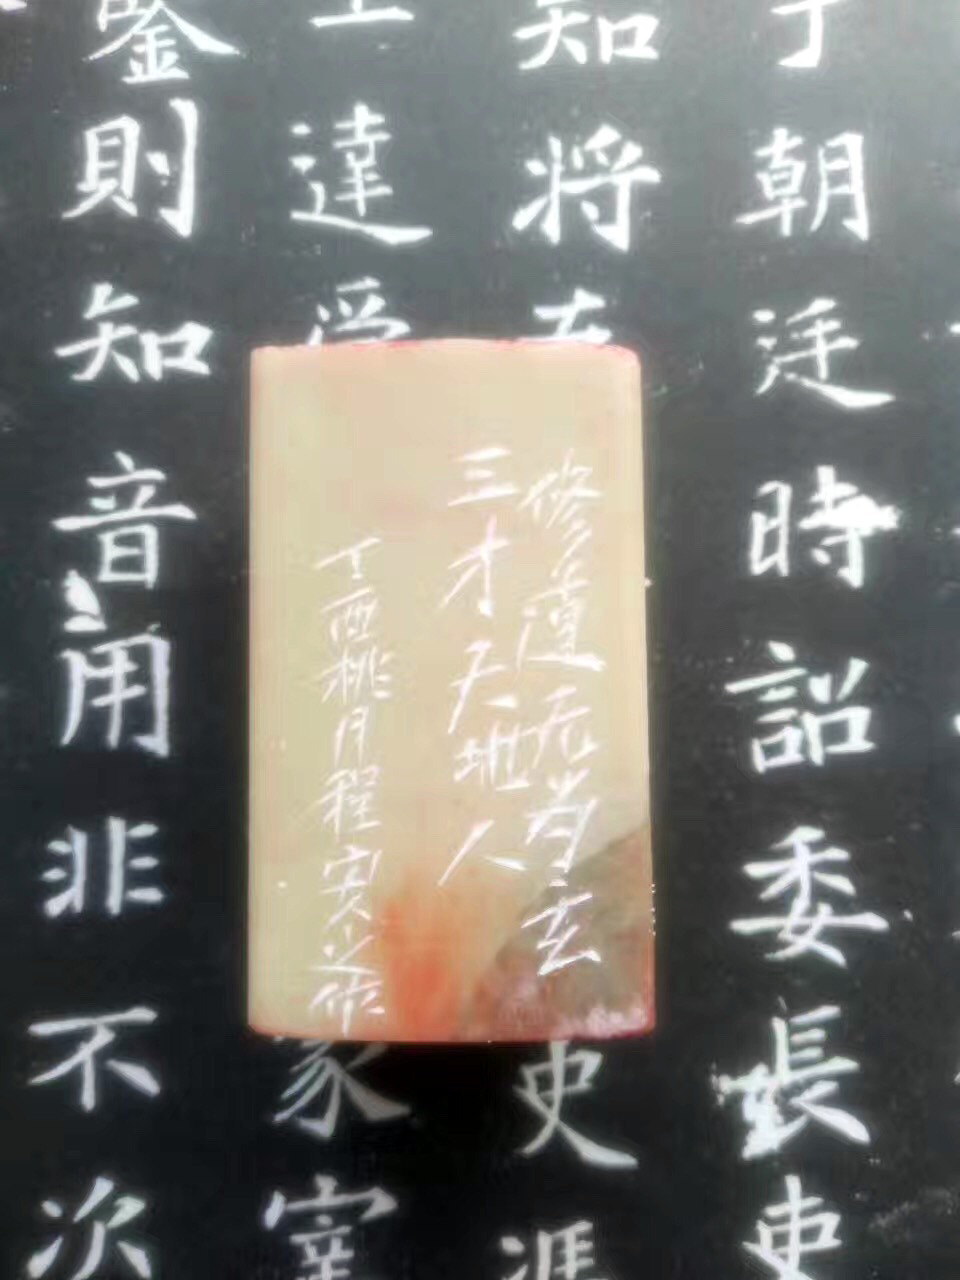 丁朝廷時詔委長史
知将
史涯
達
家室
鉴則知音用非不次
修道无为玄
三才天地人
丁酉桃月程安之作